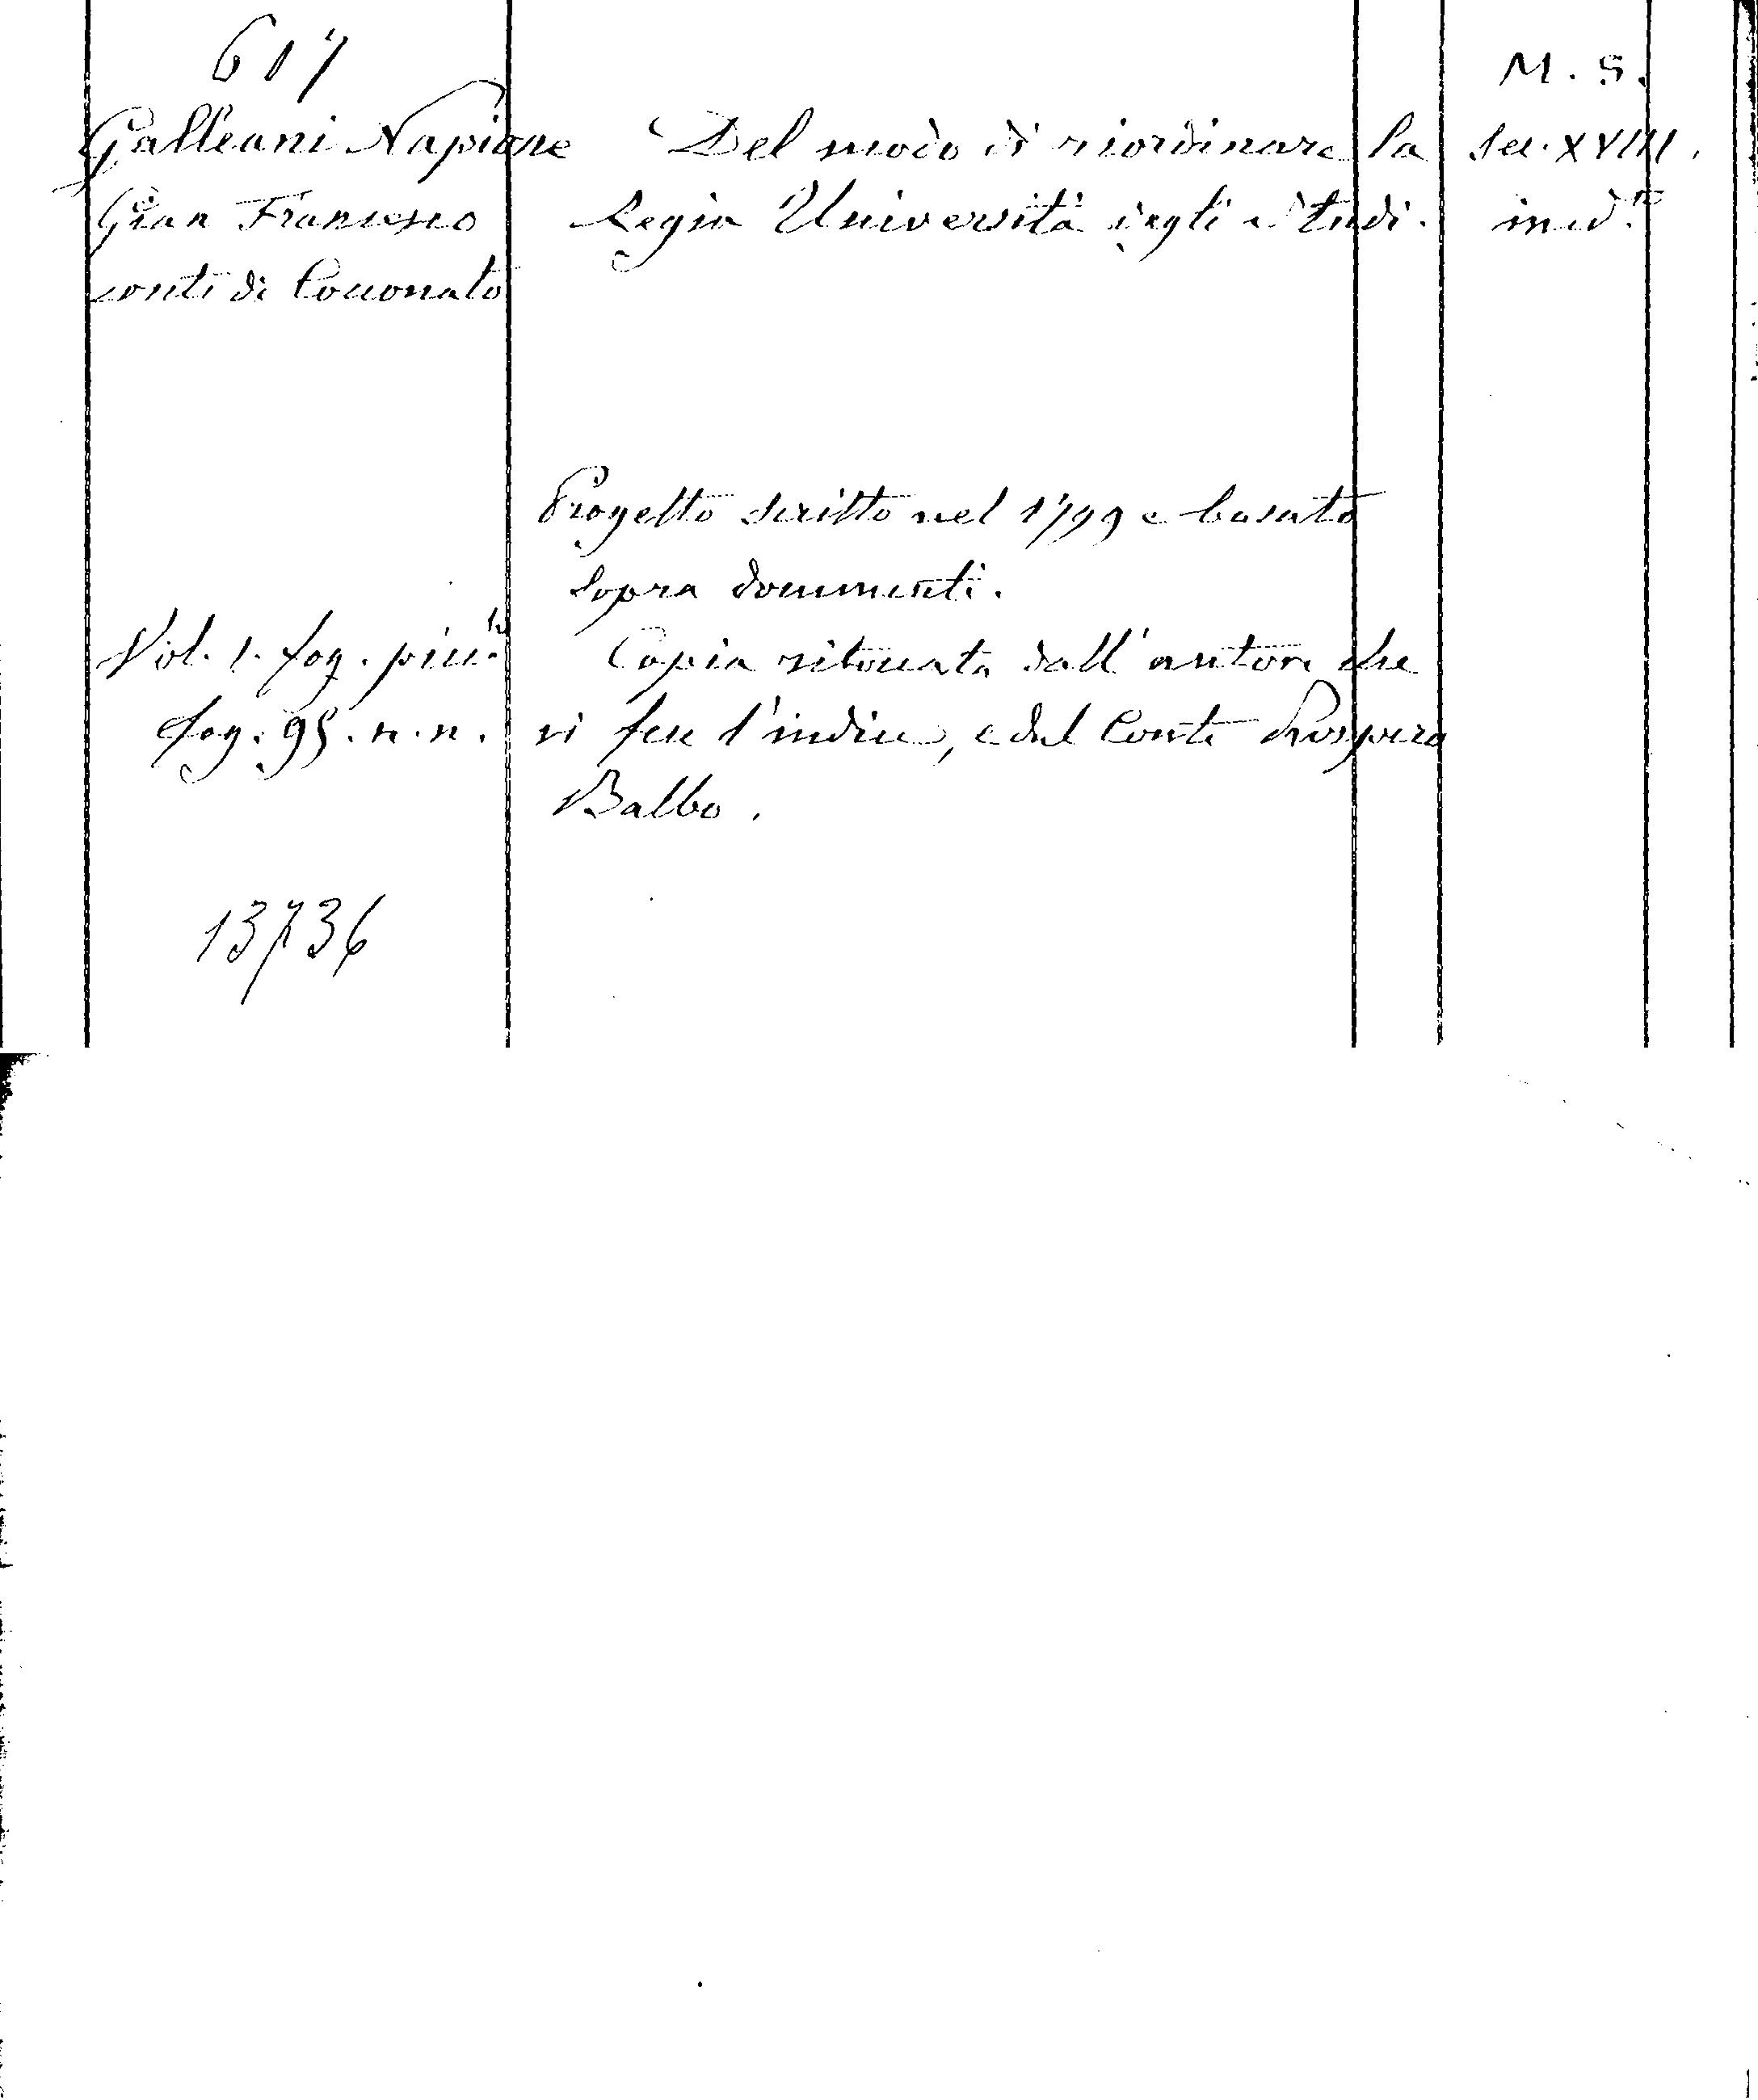 617
M. S.
Galleani Napione
Del modo di riordinare la
Sec. XVIII.
Gian Francesco
Regia Università degli Studi.
ined.to
conte di Cocconato
Progetto scritto nel 1799 e basato
sopra documenti.
Vol. 1. fog. picc.lo
Copia ritoccata dall'autore che
fog. 95. n. n.
vi fece l'indice, e dal Conte Prospero
Balbo.
13736